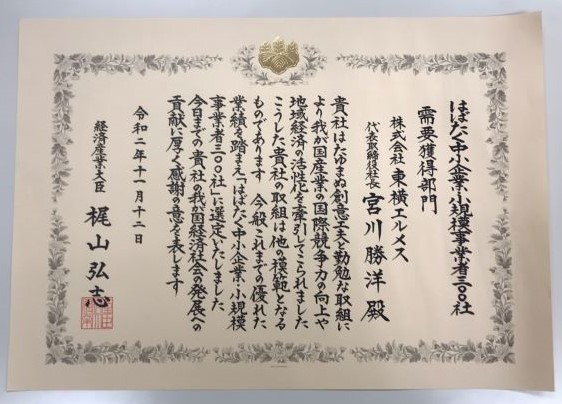 はばたく中小企業・小規模事業者三〇〇社
需要獲得部門
株式会社 東横エルメス
代表取締役社長 宮川勝洋 殿
貴社はたゆまぬ創意工夫と勤勉な取組に
より我が国産業の国際競争力の向上や
地域経済の活性化を牽引してこられました
こうした貴社の取組は他の模範となる
ものであります 今般これまでの優れた
業績を踏まえ「はばたく中小企業・小規模
事業者三〇〇社」に選定いたしました
今日までの貴社の我が国経済社会の発展への
貢献に厚く感謝の意を表します
令和二年十一月十二日
経済産業大臣 梶山弘志